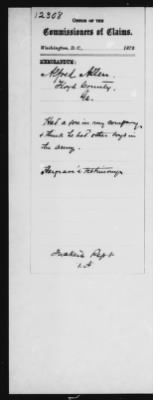 12308
OFFICE OF THE
Commissioners of Claims.
Washington, D. C., 187
MEMORANDUM:
Alfred Allen.
Floyd County,
Ga.
Had a son in my company,
& think he had other boys in
the army.
Hargrave's testimony.